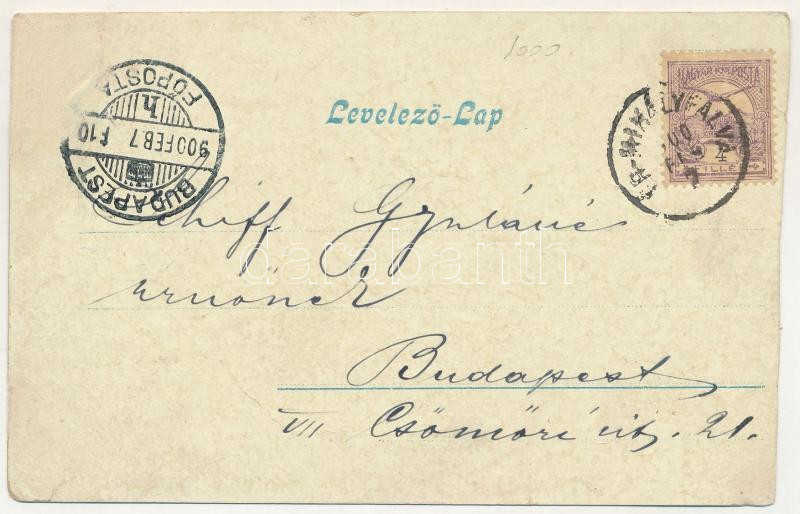 1000
MAGYAR KIR. POSTA
4
FILLÉR
ÉR-MIHÁLYFALVA
900
FEB
BUDAPEST
900 FEB. 7 F10
h
FŐPOSTA
Levelező-Lap
Schiff Gyuláné
urnőnek
darabanth
Budapest
VII Csömöri út. 21.